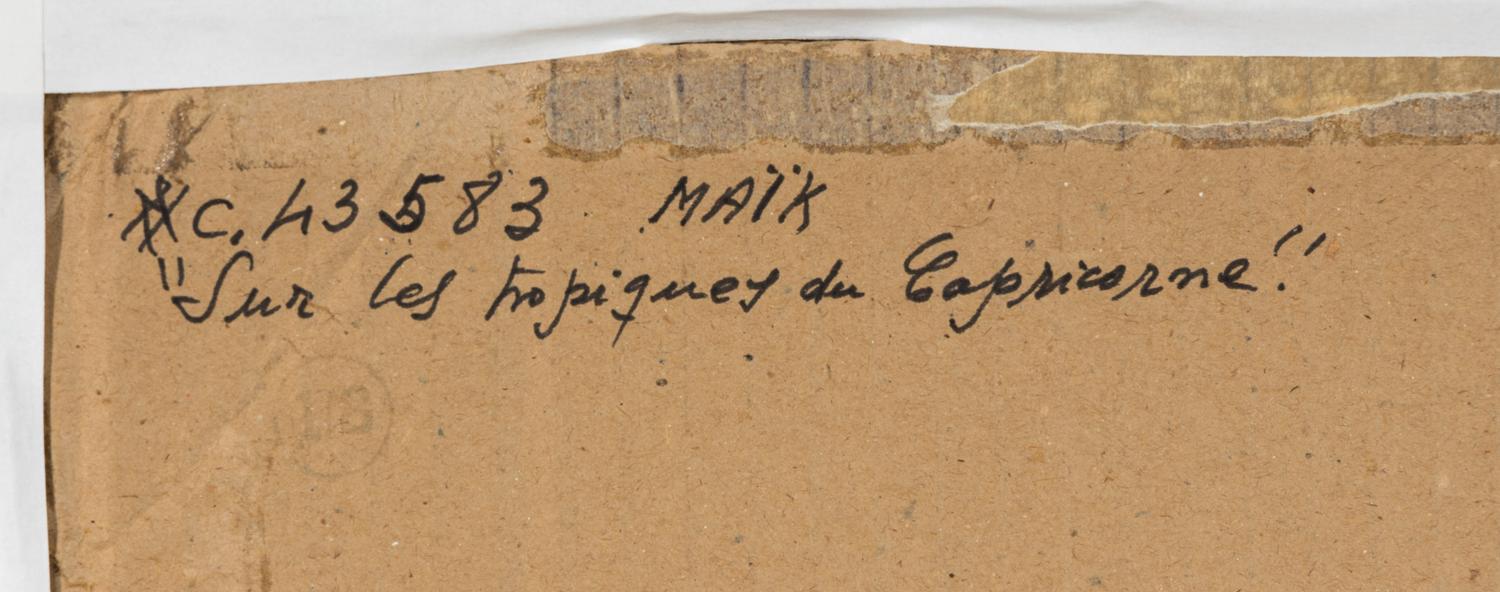 C. 43583 MAÏK
"Sur les tropiques du Capricorne!"